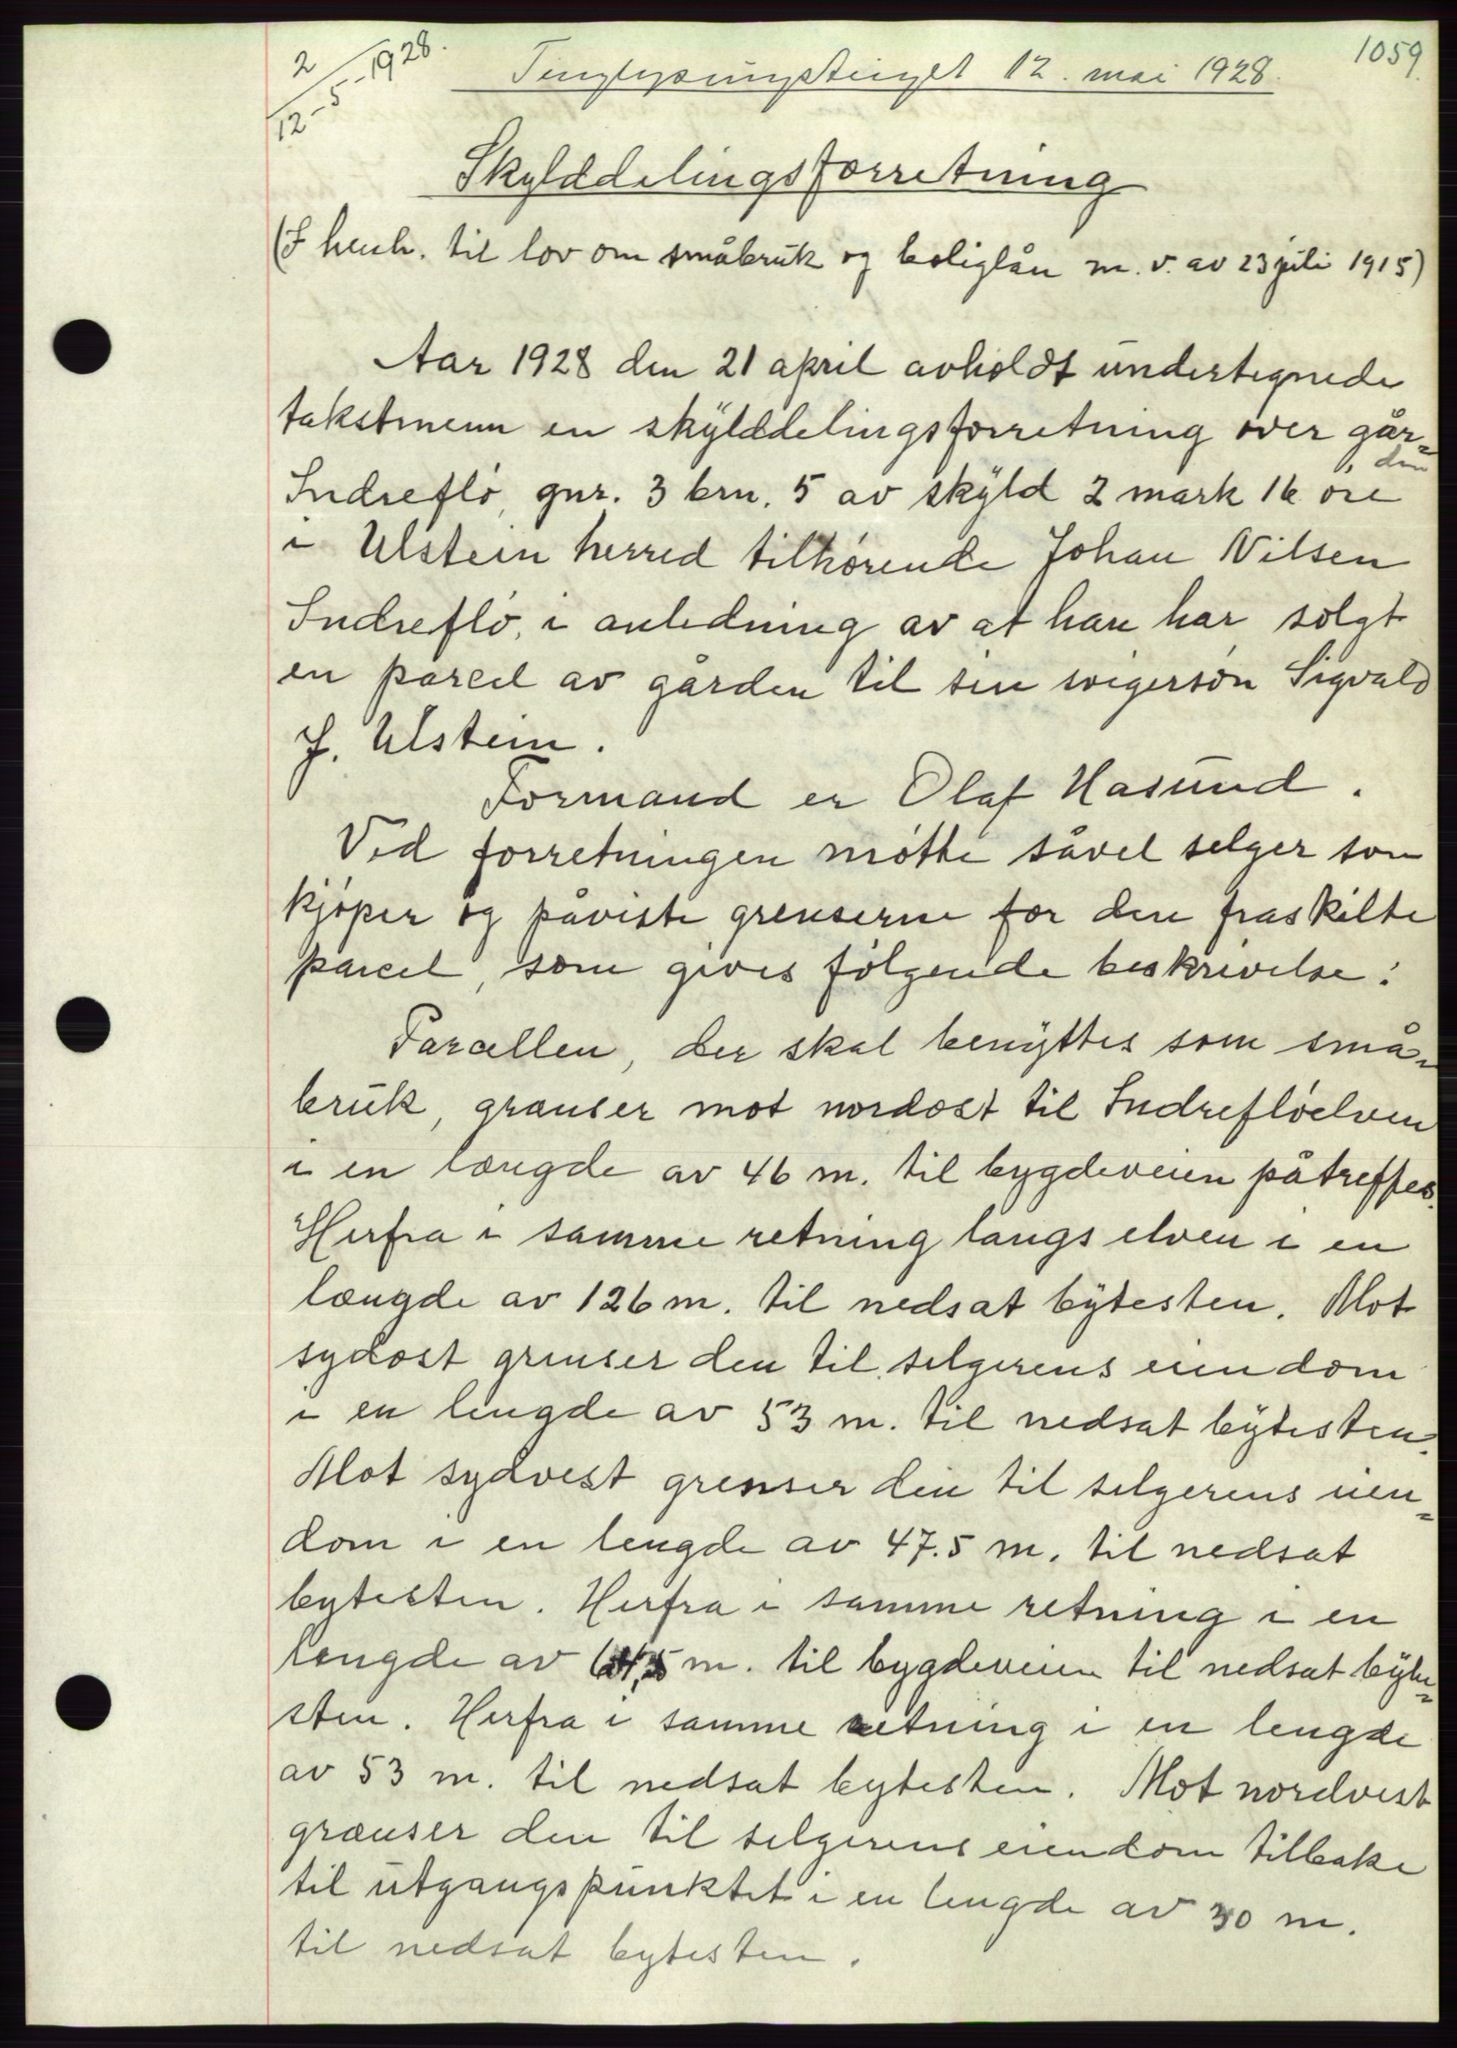 2
12-5-1928.
Tinglysningstinget 12. mai 1928.
1059.
Skylddelingsforretning
(I henh. til lov om småbruk og boliglån m. v. av 23 juli 1915)
Aar 1928 den 21 april avholdt undertegnede
takstmenn en skylddelingsforretning over går-
den
Indreflø, gnr. 3 brn. 5 av skyld 2 mark 16 øre
i Ulstein herred tilhørende Johan Nilsen
Indreflø, i anledning av at han har solgt
en parcel av gården til sin svigersøn Sigvald
J. Ulstein.
Formand er Olaf Hasund.
Ved forretningen møtte såvel selger som
kjøper og påviste grenserne for den fraskilte
parcel, som gives følgende beskrivelse:
Parcellen, der skal benyttes som små-
bruk, grænser mot nordost til Indrefløelven
i en længde av 46 m. til bygdeveien påtreffes.
Herfra i samme retning langs elven i en
længde av 126 m. til nedsat bytesten. Mot
sydost grenser den til selgerens eiendom
i en lengde av 53 m. til nedsat bytesten.
Mot sydvest grenser den til selgerens eien-
dom i en lengde av 47.5 m. til nedsat
bytesten. Herfra i samme retning i en
længde av m. til bygdeveien til nedsat byte-
sten. Herfra i samme retning i en lengde
av 53 m. til nedsat bytesten. Mot nordvest
grænser den til selgerens eiendom tilbake
til utgangspunktet i en lengde av 30 m.
til nedsat bytesten.